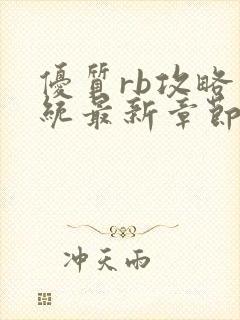 優質rb攻略
統最新章節
冲天雨